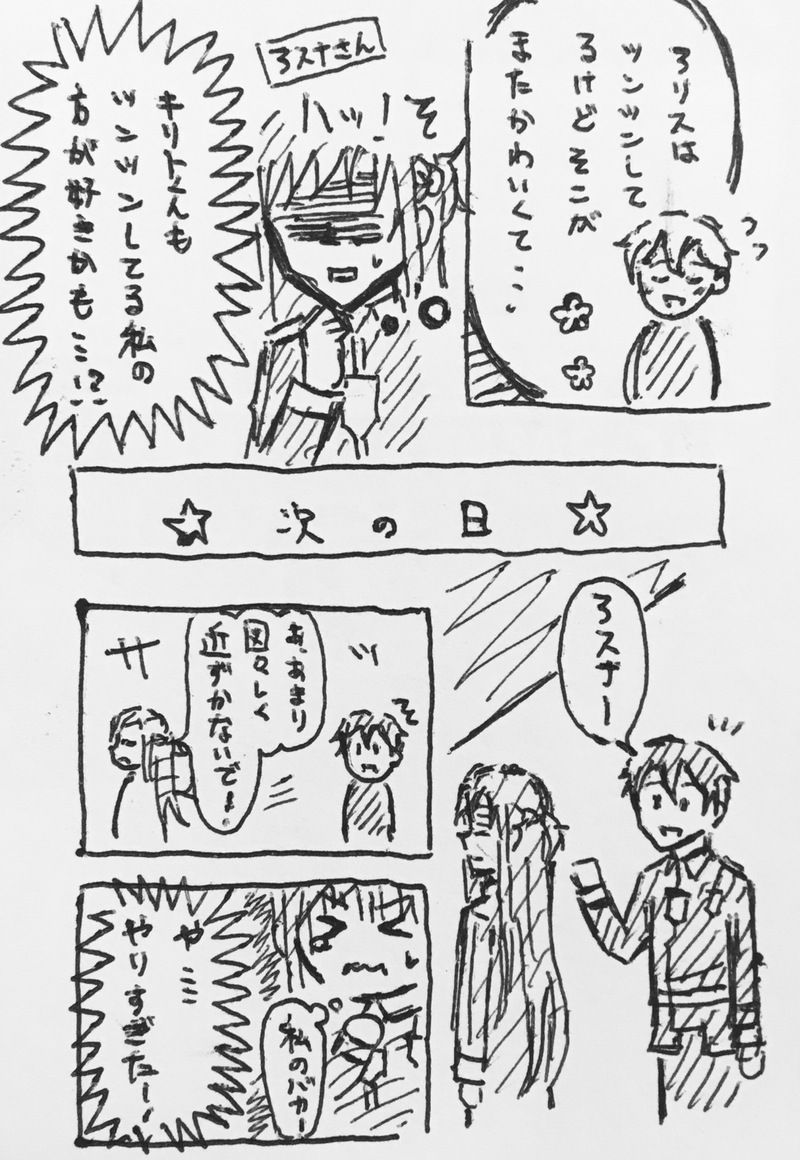 アリスは
ツンツンして
るけどそこが
またかわいくて…。
アスナさん
ハッ!
キリトくんも
ツンツンしてる私の
方が好きかも…!?
☆ 次の日 ☆
アスナー
あ、あまり
図々しく
近ずかないで!
私のバカー
や…
やりすぎたー!